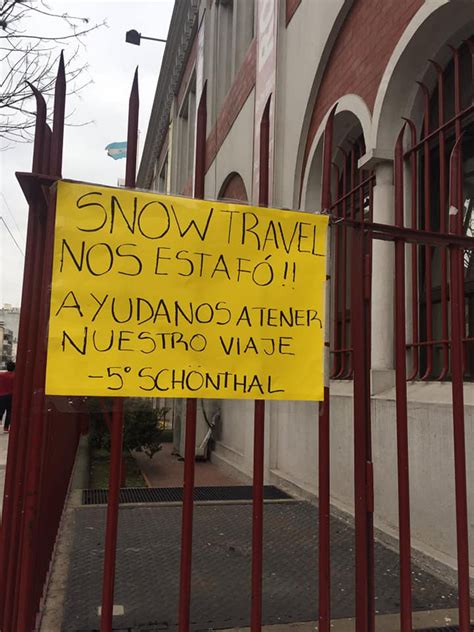 SNOW TRAVEL
NOS ESTAFÓ!!
AYUDANOS A TENER
NUESTRO VIAJE
-5° SCHÖNTHAL